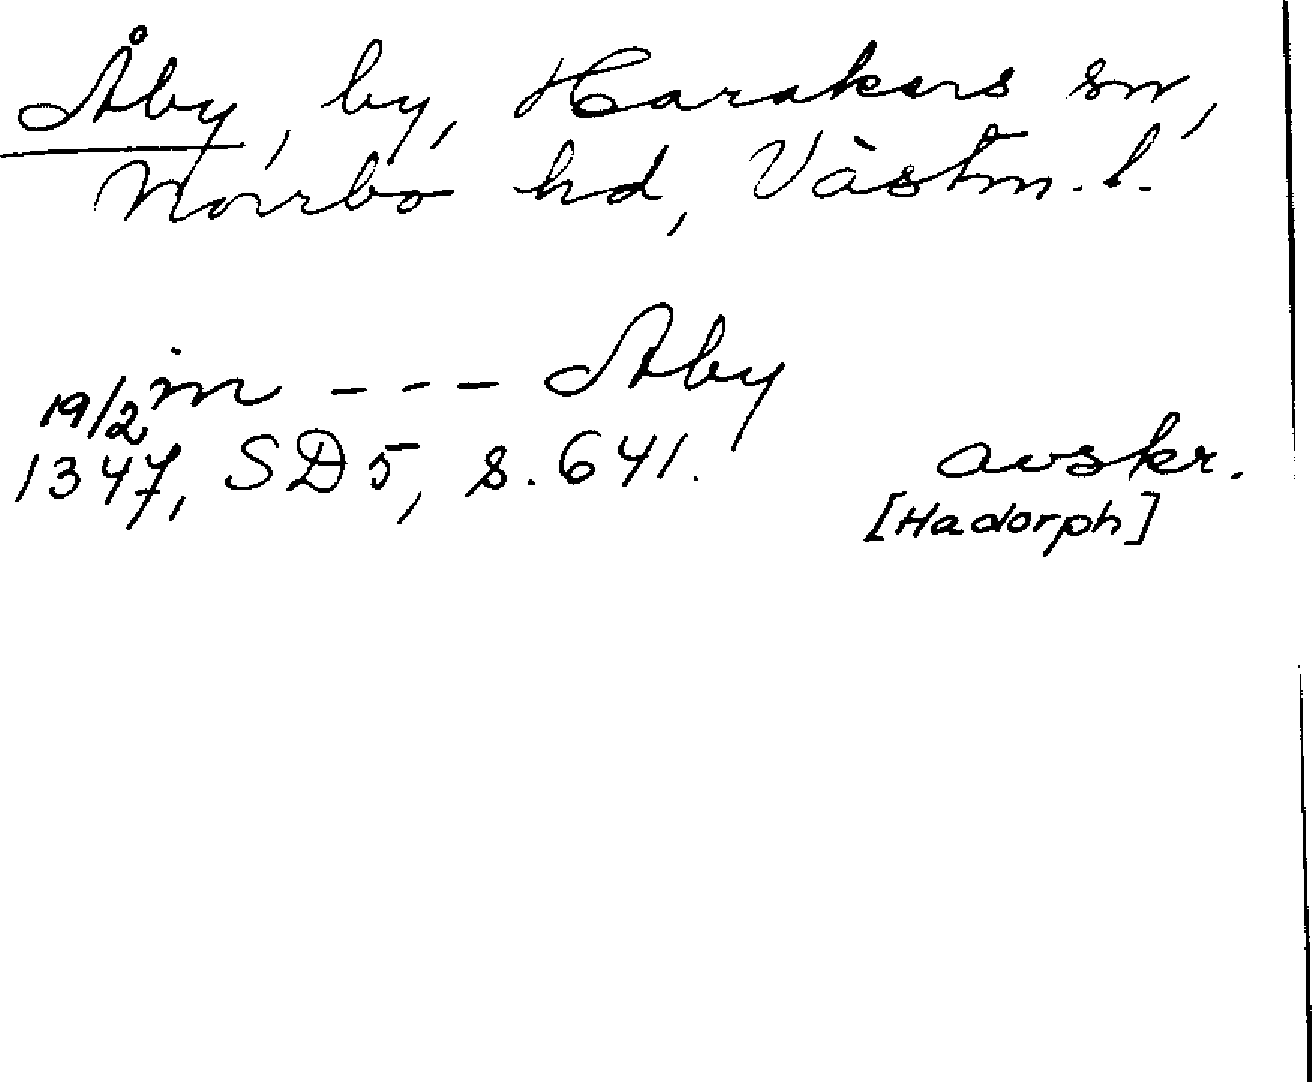 Åby, by, Harakers sn,
Norrbo hd, Västm. l.
in - - - Aby
19/2
1347, SD5, s. 641.
avskr.
[Hadorph]